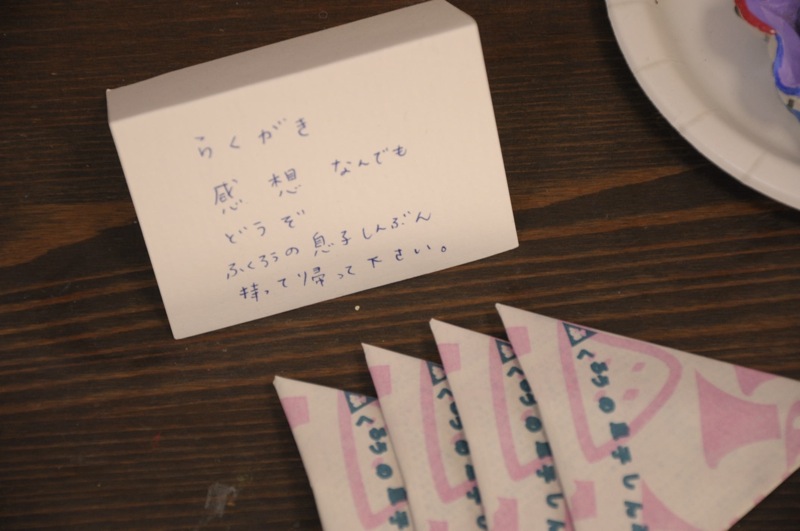 らくがき
感想 なんでも
どうぞ
ふくろうの息子しんぶん
持って帰って下さい。
くろうの息子
くろうの息子しん